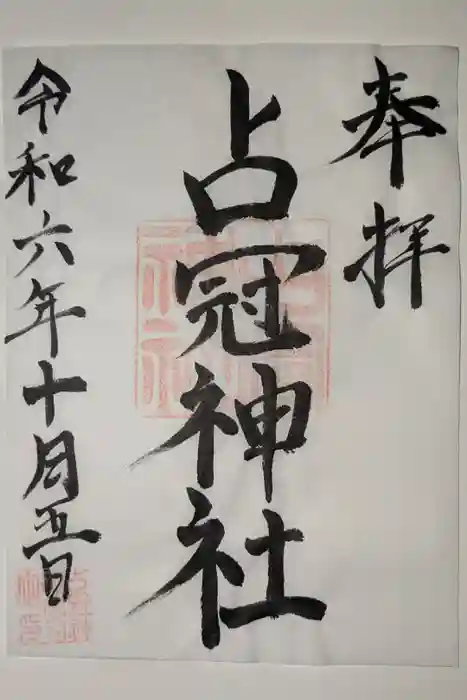 奉拝
占冠神社
令和六年十月五日